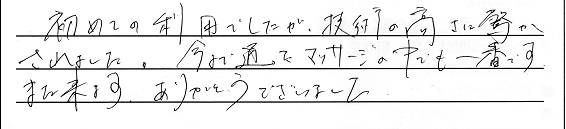 初めての利用でしたが、技術の高さに驚か
されました。今まで通ってマッサージの中でも一番です
また来ます。ありがとうございました